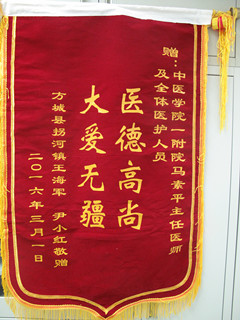 赠：中医学院一附院马素平主任医师
及全体医护人员
医德高尚
大爱无疆
方城县拐河镇王海军 尹小红敬赠
二〇一六年三月一日